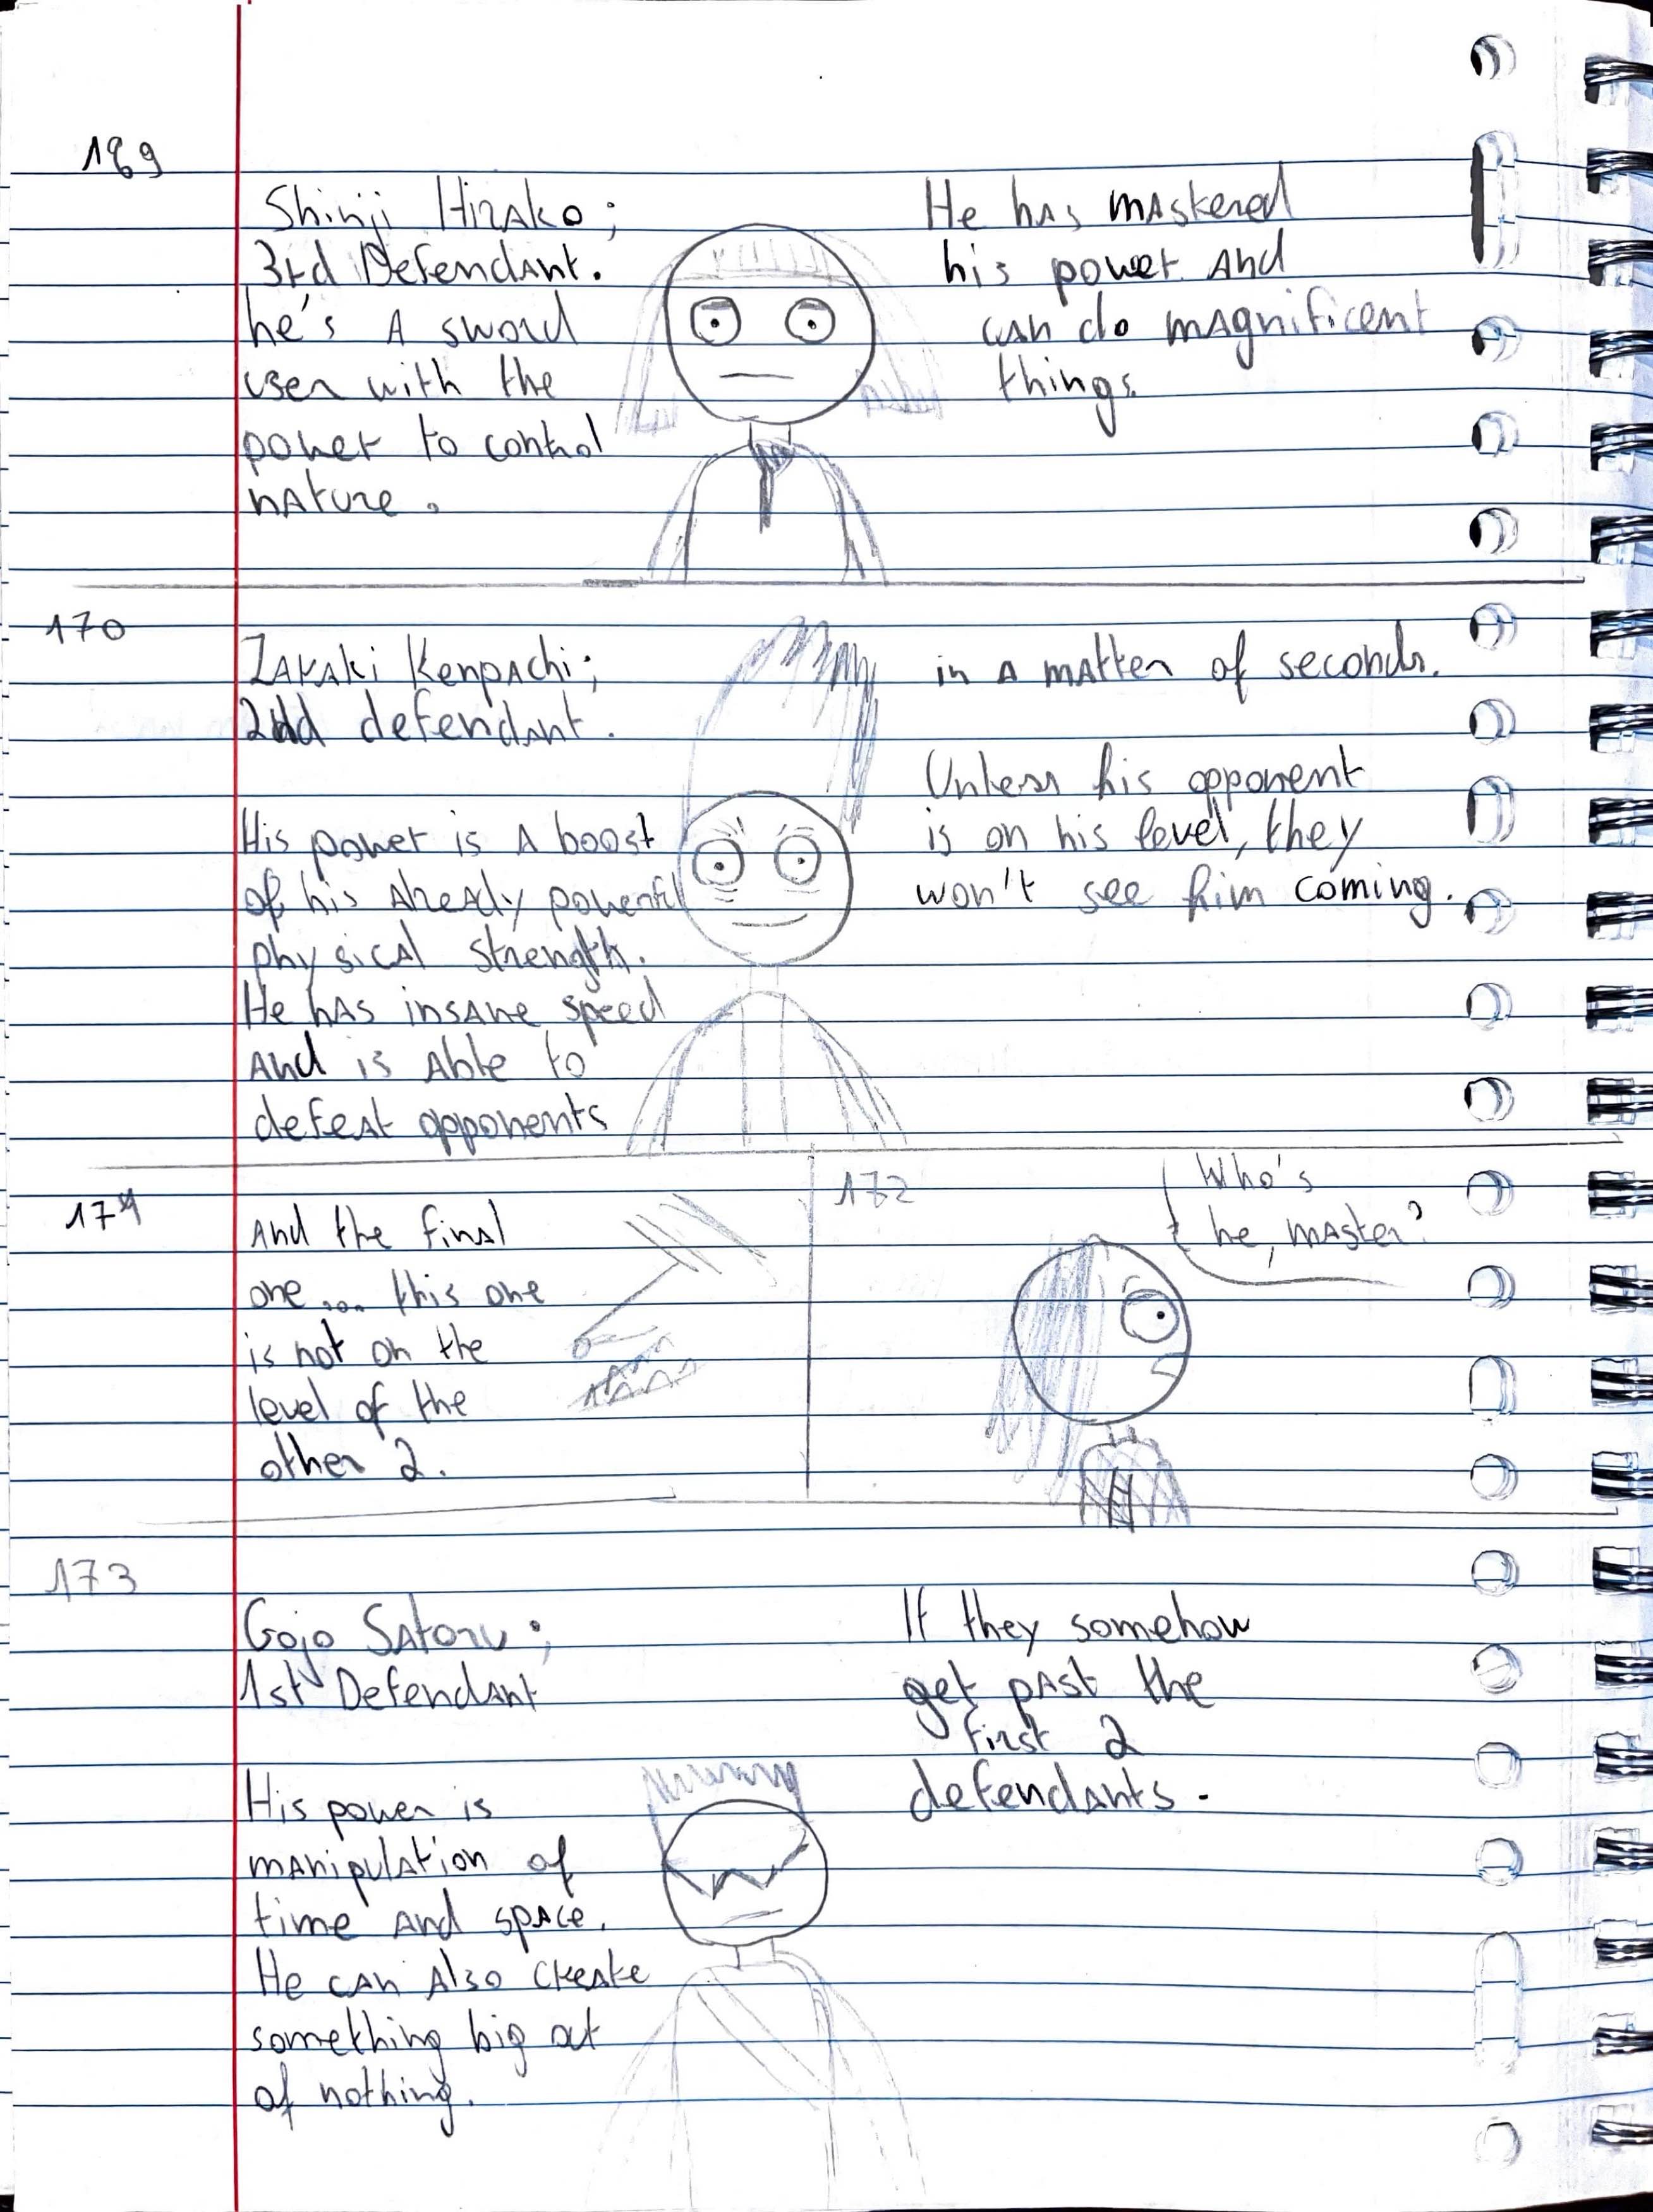 169
Shinji Hirako;
3rd Defendant.
he's A sword
user with the
power to control
nature.
He has mastered
his power and
can do magnificent
things.
170
Zaraki Kenpachi;
2nd defendant.
His power is A boost
of his Already powerful
physical strength.
He has insane speed
And is Able to
defeat opponents
in A matter of seconds.
Unless his opponent
is on his level, they
won't see him coming.
171
And the final
one.... this one
is not on the
level of the
other 2.
172
Who's
he, master?
173
Gojo Satoru;
1st Defendant
His power is
manipulation of
time and space.
He can Also create
something big out
of nothing.
If they somehow
get past the
first 2
defendants.